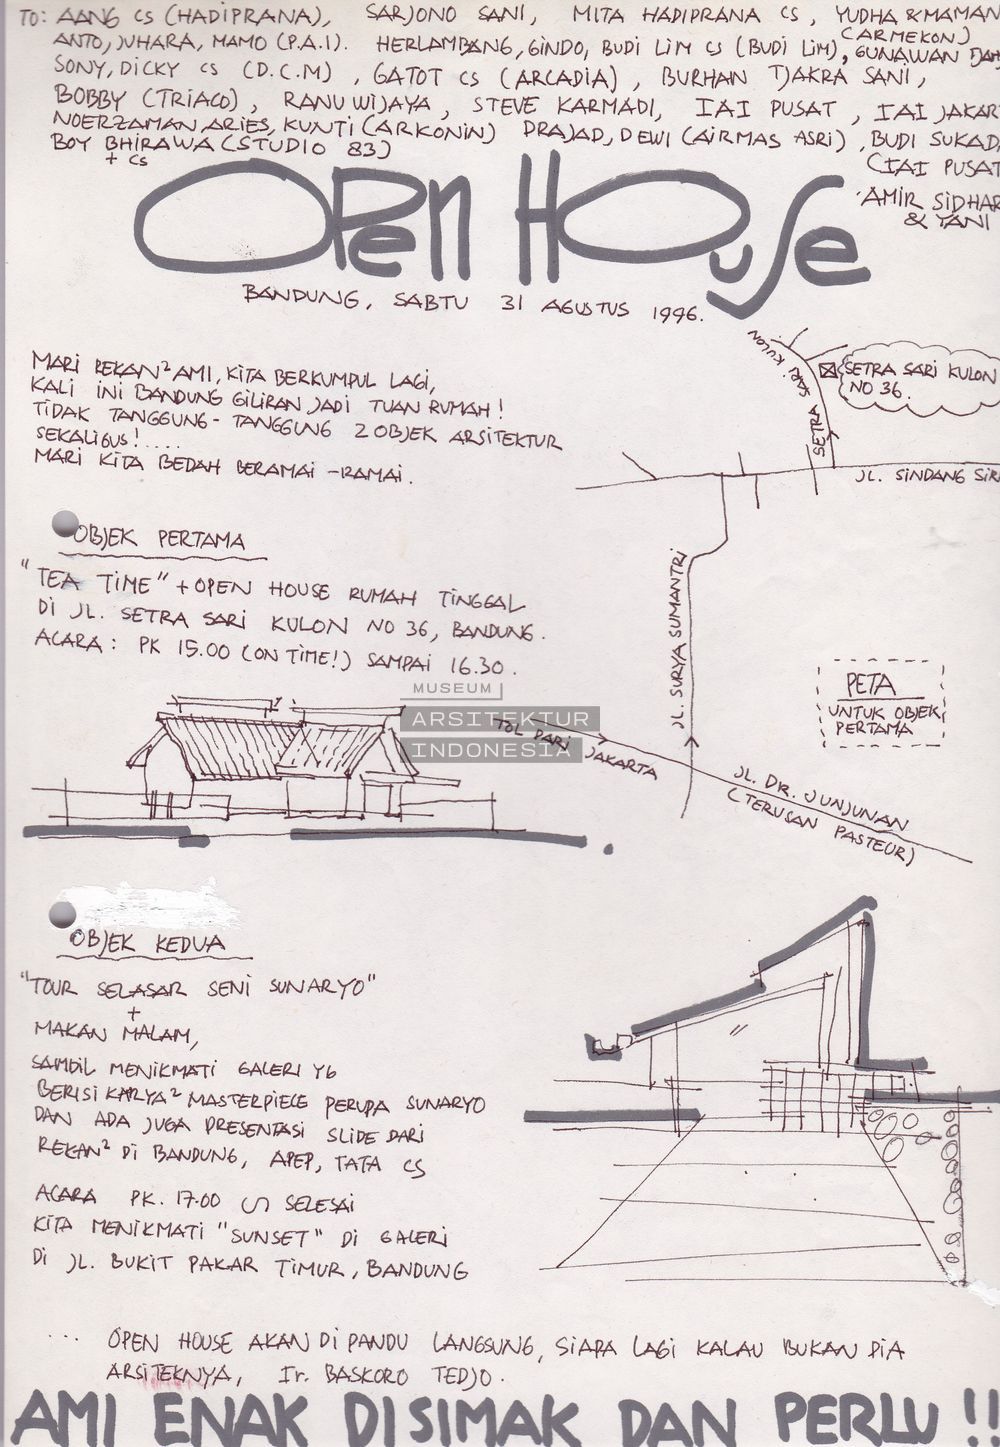 TO: AANG CS (HADIPRANA), SARJONO SANI, MITA HADIPRANA CS, YUDHA & MAMAN
(ARMEKON)
ANTO, JUHARA, MAMO (P.A.I). HERLAMBANG, GINDO, BUDI LIM CS (BUDI LIM), GUNAWAN
SONY, DICKY CS (D.C.M), GATOT CS (ARCADIA), BURHAN TJAKRA SANI,
BOBBY (TRIACO), RANU WIJAYA, STEVE KARMADI, IAI PUSAT, IAI JAKAR
NOERZAMAN, ARIES, KUNTI (ARKONIN) DRAJAD, DEWI (AIRMAS ASRI), BUDI SUKADA
BOY BHIRAWA (STUDIO 83)
+ CS
(IAI PUSAT
AMIR SIDHAR
& YANI
OPEN HOUSE
BANDUNG, SABTU 31 AGUSTUS 1996.
MARI REKAN² AMI, KITA BERKUMPUL LAGI,
KALI INI BANDUNG GILIRAN JADI TUAN RUMAH!
TIDAK TANGGUNG-TANGGUNG 2 OBJEK ARSITEKTUR
SEKALIGUS!....
MARI KITA BEDAH BERAMAI-RAMAI.
SETRA SARI KULON
SETRA SARI KULON
NO 36.
JL. SINDANG SIR
OBJEK PERTAMA
"TEA TIME" + OPEN HOUSE RUMAH TINGGAL
DI JL. SETRA SARI KULON NO 36, BANDUNG.
ACARA: PK 15.00 (ON TIME!) SAMPAI 16.30.
JL. SURYA SUMANTRI
PETA
UNTUK OBJEK
PERTAMA
MUSEUM
ARSITEKTUR
INDONESIA
TOL DARI JAKARTA
JL. DR. JUNJUNAN
(TERUSAN PASTEUR)
OBJEK KEDUA
"TOUR SELASAR SENI SUNARYO"
+
MAKAN MALAM,
SAMBIL MENIKMATI GALERI YG
BERISI KARYA² MASTERPIECE PERUPA SUNARYO
DAN ADA JUGA PRESENTASI SLIDE DARI
REKAN² DI BANDUNG, APEP, TATA CS
ACARA PK. 17.00 S/D SELESAI
KITA MENIKMATI "SUNSET" DI GALERI
DI JL. BUKIT PAKAR TIMUR, BANDUNG
... OPEN HOUSE AKAN DI PANDU LANGSUNG, SIAPA LAGI KALAU BUKAN DIA
ARSITEKNYA, Ir. BASKORO TEDJO.
AMI ENAK DISIMAK DAN PERLU!!